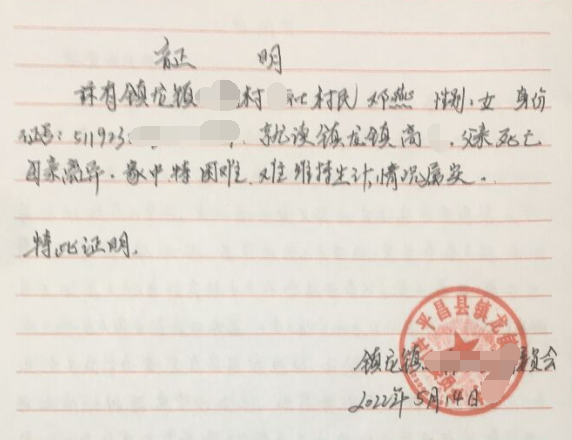 证 明
兹有镇龙镇 村 社村民邓燕 性别:女 身份
证号:511923 就读镇龙镇高,父亲死亡
母亲离异.家中特困难、难维持生计,情况属实.
特此证明.
平昌县镇龙镇
镇龙镇 委员会
2022年5月14日